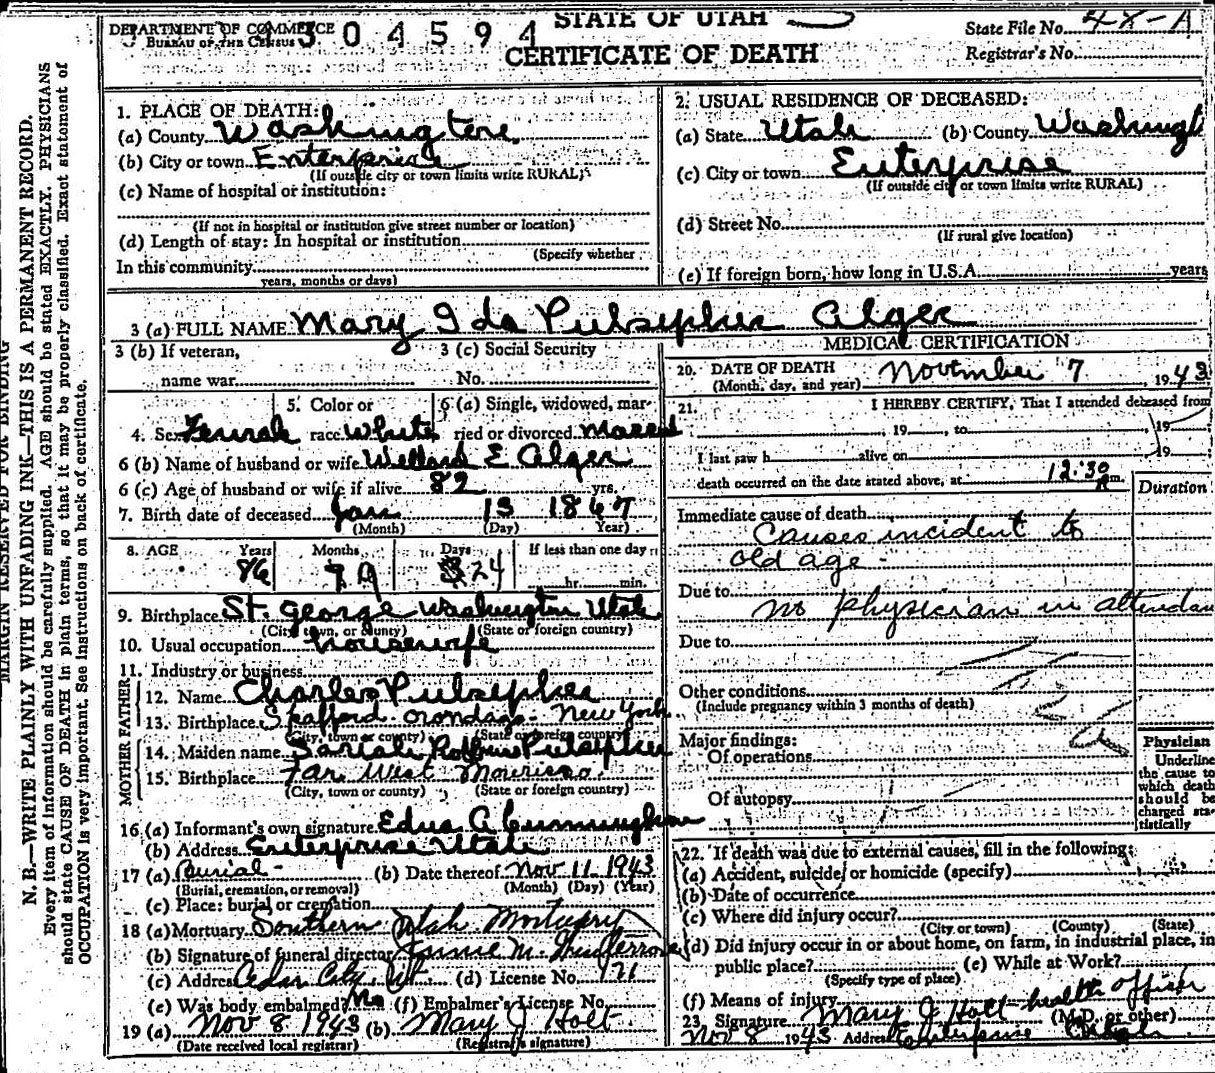 STATE OF UTAH
DEPARTMENT OF COMMERCE
BUREAU OF THE CENSUS
4304594
CERTIFICATE OF DEATH
State File No. 48-A
Registrar's No.
MARGIN RESERVED FOR BINDING
N. B.—WRITE PLAINLY WITH UNFADING INK—THIS IS A PERMANENT RECORD.
Every item of information should be carefully supplied. AGE should be stated EXACTLY. PHYSICIANS
should state CAUSE OF DEATH in plain terms, so that it may be properly classified. Exact statement of
OCCUPATION is very important. See instructions on back of certificate.
1. PLACE OF DEATH:
(a) County Washington
(b) City or town Enterprise
(If outside city or town limits write RURAL)
(c) Name of hospital or institution:
(If not in hospital or institution give street number or location)
(d) Length of stay: In hospital or institution
(Specify whether
In this community
years, months or days)
2. USUAL RESIDENCE OF DECEASED:
(a) State Utah (b) County Washingt
(c) City or town Enterprise
(If outside city or town limits write RURAL)
(d) Street No.
(If rural give location)
(e) If foreign born, how long in U.S.A. years
3 (a) FULL NAME Mary Ida Pulsipher Alger
3 (b) If veteran,
name war
3 (c) Social Security
No.
4. Sex Female
5. Color or race White
6 (a) Single, widowed, married or divorced Married
6 (b) Name of husband or wife Willard E Alger
6 (c) Age of husband or wife if alive 82 yrs.
7. Birth date of deceased Jan 13 1857
(Month) (Day) Year)
8. AGE Years Months Days If less than one day
86 9 24 hr. min.
9. Birthplace St. George Washington Utah
(City, town, or county) (State or foreign country)
10. Usual occupation housewife
11. Industry or business
FATHER
12. Name Charles Pulsipher
13. Birthplace Spafford Onondaga - New York
(City, town or county) (State or foreign country)
MOTHER
14. Maiden name Sariah Robbins Pulsipher
15. Birthplace Far West Mourisso
(City, town or county) (State or foreign country)
16 (a) Informant's own signature Edna A Cunningham
(b) Address Enterprise Utah
17 (a) Burial - (b) Date thereof Nov 11 1943
(Burial, cremation, or removal) (Month) (Day) (Year)
(c) Place: burial or cremation
18 (a) Mortuary Southern Utah Mortuary
(b) Signature of funeral director
(c) Address Cedar City, Ut (d) License No. 71
(e) Was body embalmed? No (f) Embalmer's License No.
19 (a) Nov 8 1943 (b) Mary J Holt
(Date received local registrar) (Registrar's signature)
MEDICAL CERTIFICATION
20. DATE OF DEATH November 7, 1943
(Month, day, and year)
21. I HEREBY CERTIFY, That I attended deceased from
, 19 , to , 19
I last saw h alive on , 19
death occurred on the date stated above, at 12:30 m.
Duration
Immediate cause of death
Causes incident to
old age -
Due to no physician in attendan
Due to
Other conditions
(Include pregnancy within 3 months of death)
Major findings:
Of operations
Of autopsy
Physician
Underline
the cause to
which death
should be
charged sta-
tistically
22. If death was due to external causes, fill in the following:
(a) Accident, suicide, or homicide (specify)
(b) Date of occurrence
(c) Where did injury occur?
(City or town) (County) (State)
(d) Did injury occur in or about home, on farm, in industrial place, in
public place? (e) While at Work?
(Specify type of place)
(f) Means of injury
23. Signature Mary J Holt - health officer
(M.D. or other)
Nov 8 1943 Address Enterprise Utah